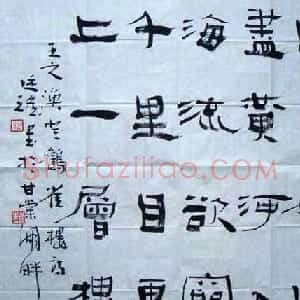 盡黃河入
海流欲窮
千里目更
上一層樓
王之渙登鸛雀樓詩
書於甘棠湖畔
Shufaziliao.com